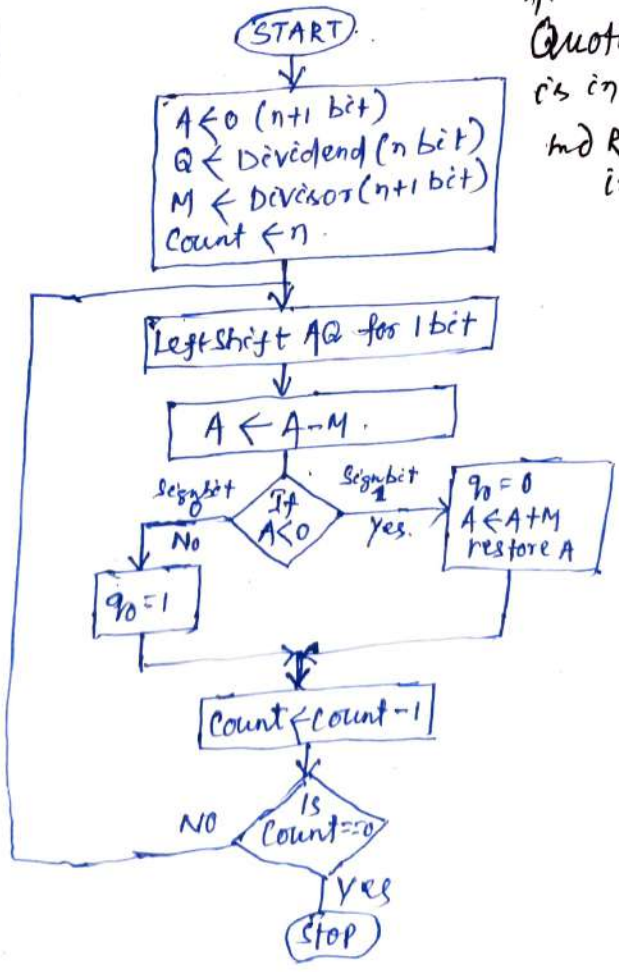 START
Quot
is in
A ← 0 (n+1 bit)
Q ← Dividend (n bit)
M ← Divisor (n+1 bit)
Count ← n
Left Shift AQ for 1 bit
A ← A - M.
Sign bit
0
No
If
A<0
Sign bit
1
Yes.
q0 = 0
A ← A + M
restore A
q0 = 1
Count ← Count - 1
Is
Count == 0
NO
Yes
Stop